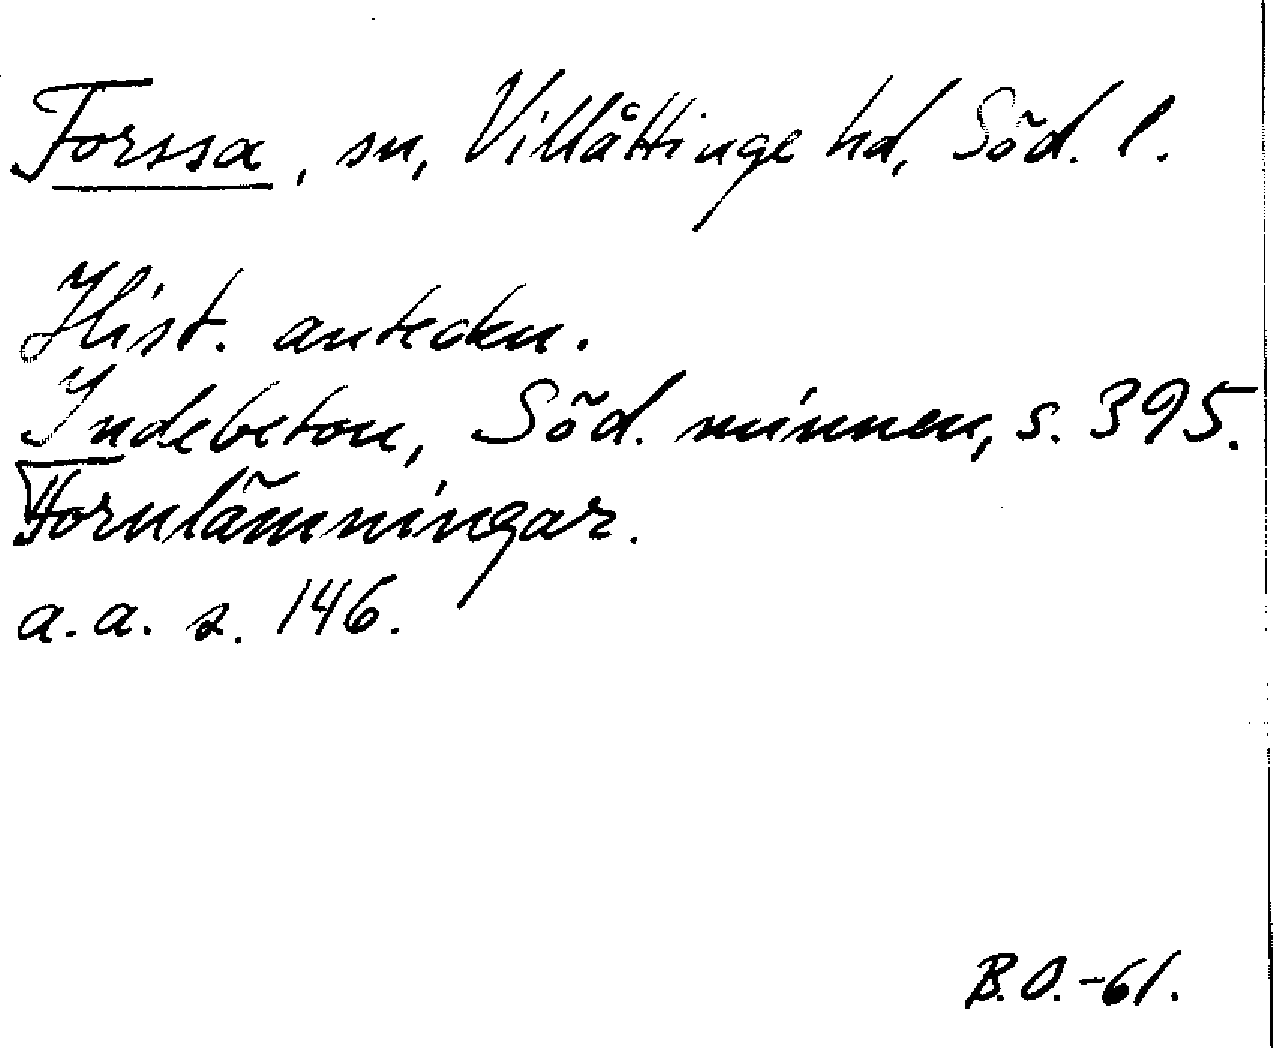 Forssa, sn, Villåttinge hd, Söd. l.
Hist. anteckn.
Indebetou, Söd. minnen, s. 395.
Fornlämningar.
a.a. s. 146.
B.O.-61.